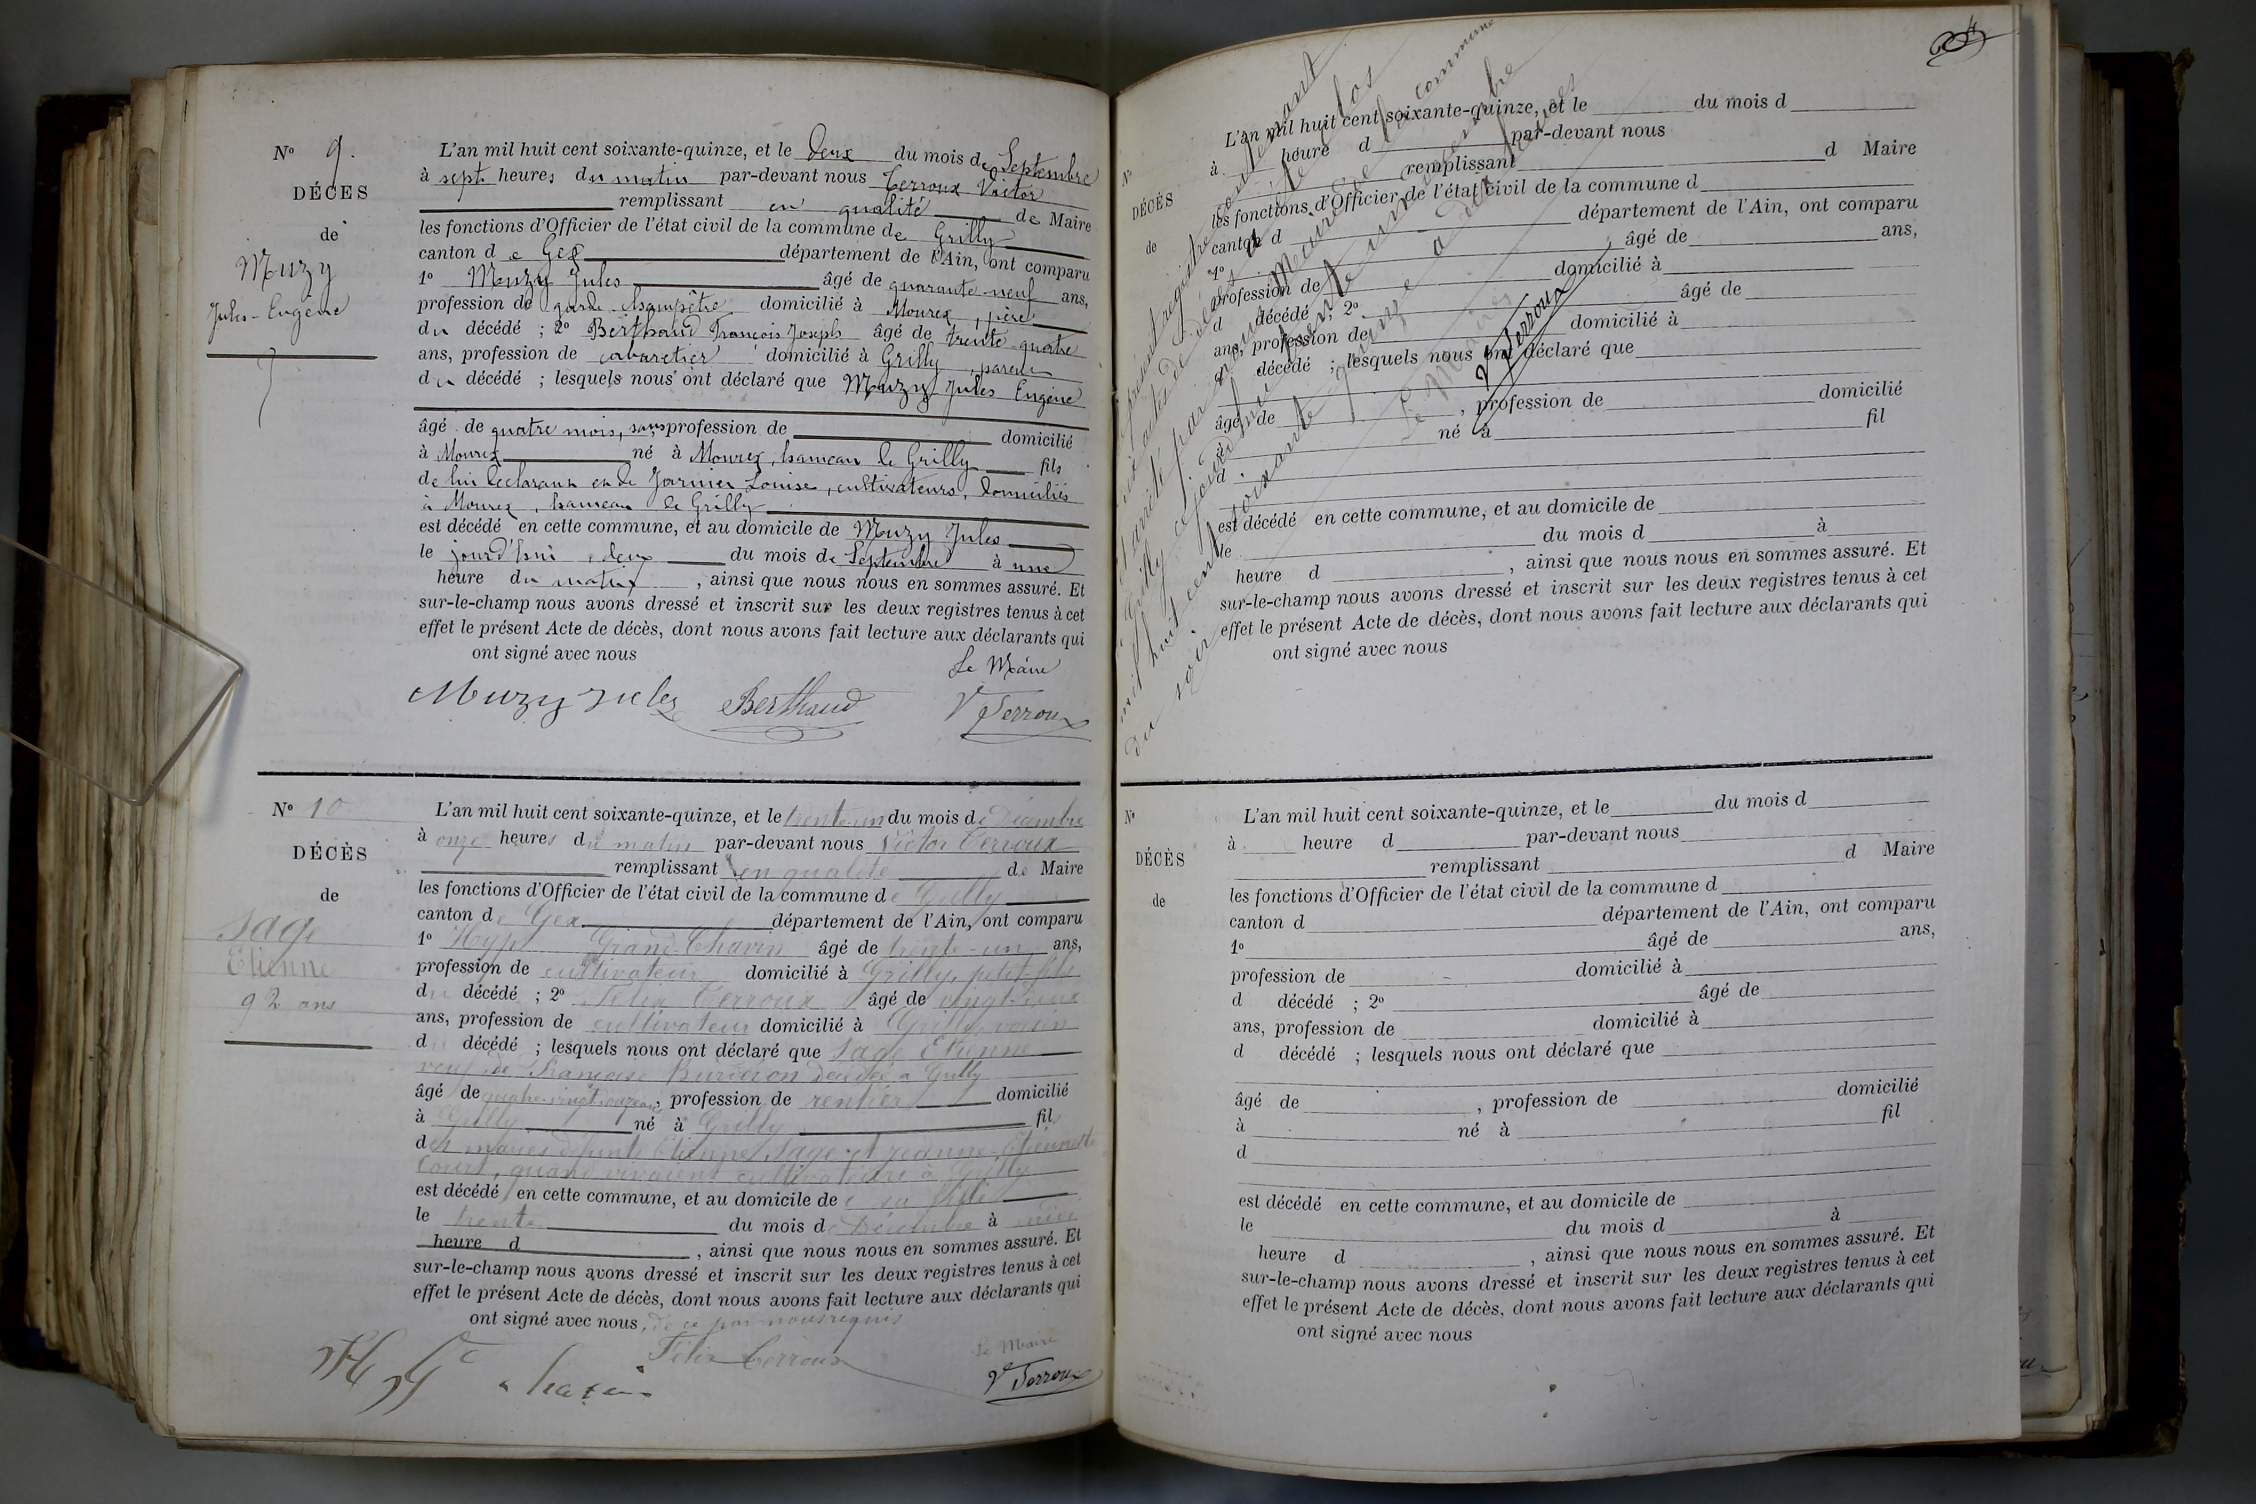 N° 9.
DÉCES
de
Muzy
Jules-Eugène
L'an mil huit cent soixante-quinze, et le deux du mois de Septembre
à sept heures du matin par-devant nous Terroux Victor
remplissant en qualité de Maire
les fonctions d'Officier de l'état civil de la commune de Grilly
canton de Gex département de l'Ain, ont comparu
1° Muzy Jules âgé de quarante-neuf ans,
profession de garde champêtre domicilié à Mourex, père
du décédé ; 2° Berthaud François Joseph âgé de trente-quatre
ans, profession de cabaretier domicilié à Grilly, parent
du décédé ; lesquels nous ont déclaré que Muzy Jules Eugène
âgé de quatre mois, sans profession de domicilié
à Mourex né à Mourex, hameau de Grilly fils
de lui déclarant et de Jarnier Louise, cultivateurs, domiciliés
à Mourex, hameau de Grilly
est décédé en cette commune, et au domicile de Muzy Jules
le jourd'hui, deux du mois de Septembre à une
heure du matin, ainsi que nous nous en sommes assuré. Et
sur-le-champ nous avons dressé et inscrit sur les deux registres tenus à cet
effet le présent Acte de décès, dont nous avons fait lecture aux déclarants qui
ont signé avec nous
Le Maire
Muzy Jules Berthaud Vr Terroux
N° 10
DÉCÈS
de
Sage
Etienne
92 ans
L'an mil huit cent soixante-quinze, et le trente-un du mois de Décembre
à onze heures du matin par-devant nous Victor Terroux
remplissant en qualité de Maire
les fonctions d'Officier de l'état civil de la commune de Grilly
canton de Gex département de l'Ain, ont comparu
1° Hyp Grand-Chavin âgé de trente-un ans,
profession de cultivateur domicilié à Grilly, petit-fils
du décédé ; 2° Felix Terroux âgé de vingt
ans, profession de cultivateur domicilié à Grilly, voisin
d décédé ; lesquels nous ont déclaré que Sage Etienne
veuf de Françoise décédé à Grilly
âgé de, profession de rentier domicilié
à Grilly né à Grilly fil
des mariés défunts Etienne Sage et Jeanne
quand vivaient cultivateurs à Grilly
est décédé en cette commune, et au domicile de
le trente du mois de Décembre à
heure d, ainsi que nous nous en sommes assuré. Et
sur-le-champ nous avons dressé et inscrit sur les deux registres tenus à cet
effet le présent Acte de décès, dont nous avons fait lecture aux déclarants qui
ont signé avec nous, de ce par nous requis
Felix Terroux
Le Maire
Vr Terroux
N°
DÉCÈS
de
L'an mil huit cent soixante-quinze, et le du mois d
à heure d par-devant nous
remplissant d Maire
les fonctions d'Officier de l'état civil de la commune d
canton d département de l'Ain, ont comparu
1° âgé de ans,
profession de domicilié à
d décédé ; 2° âgé de
ans, profession de domicilié à
d décédé ; lesquels nous ont déclaré que
âgé de, profession de domicilié
à né à fil
d
est décédé en cette commune, et au domicile de
le du mois d à
heure d, ainsi que nous nous en sommes assuré. Et
sur-le-champ nous avons dressé et inscrit sur les deux registres tenus à cet
effet le présent Acte de décès, dont nous avons fait lecture aux déclarants qui
ont signé avec nous
présent registre contenant
actes de décès a été clos
et arrêté par nous Maire de la commune
de Grilly, ce jourd'hui trente un décembre
mil huit cent soixante quinze à
du soir
Le Maire
Vr Terroux
N°
DÉCÈS
de
L'an mil huit cent soixante-quinze, et le du mois d
à heure d par-devant nous
remplissant d Maire
les fonctions d'Officier de l'état civil de la commune d
canton d département de l'Ain, ont comparu
1° âgé de ans,
profession de domicilié à
d décédé ; 2° âgé de
ans, profession de domicilié à
d décédé ; lesquels nous ont déclaré que
âgé de, profession de domicilié
à né à fil
d
est décédé en cette commune, et au domicile de
le du mois d à
heure d, ainsi que nous nous en sommes assuré. Et
sur-le-champ nous avons dressé et inscrit sur les deux registres tenus à cet
effet le présent Acte de décès, dont nous avons fait lecture aux déclarants qui
ont signé avec nous